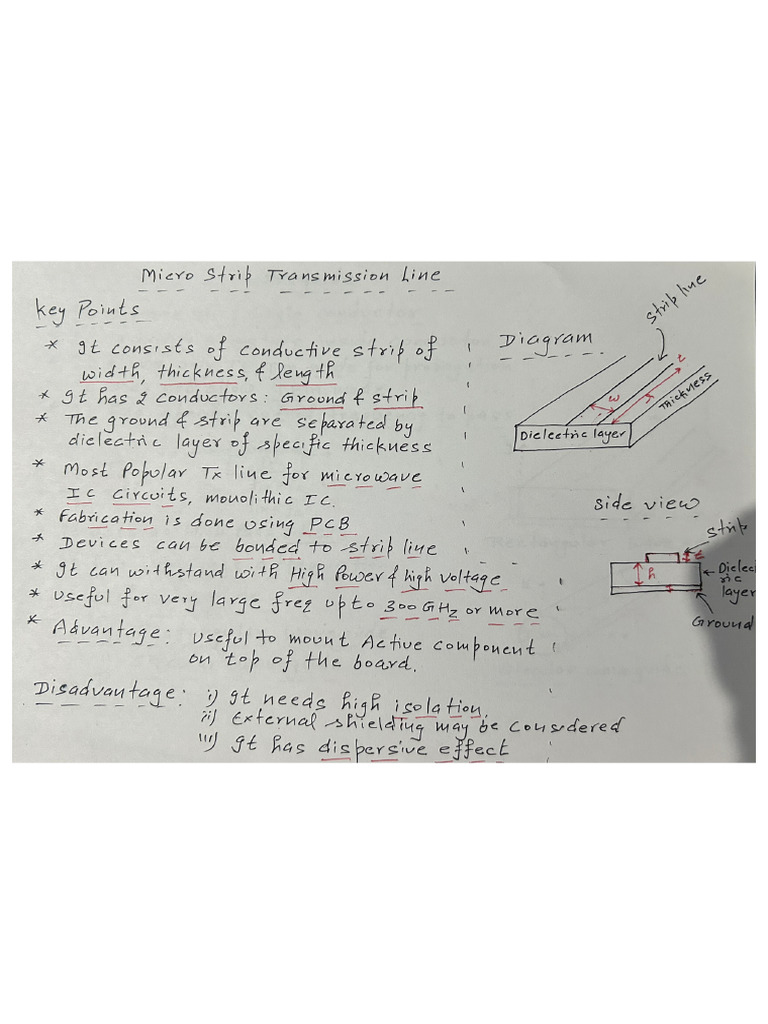 Micro Strip Transmission Line
Key Points
* It consists of conductive strip of
width, thickness, & length
* It has 2 conductors: Ground & strip
* The ground & strip are separated by
dielectric layer of specific thickness
* Most Popular Tx line for microwave
IC circuits, monolithic IC.
* Fabrication is done using PCB
* Devices can be bonded to strip line
* It can withstand with High Power & high voltage
* useful for very large freq upto 300 GHz or more
* Advantage: useful to mount Active component
on top of the board.
Disadvantage: i) It needs high isolation.
ii) External shielding may be considered
iii) It has dispersive effect
Diagram
Strip line
w
Thickness
Dielectric layer
Side view
Strip
h
Dielec
ric
layer
Ground